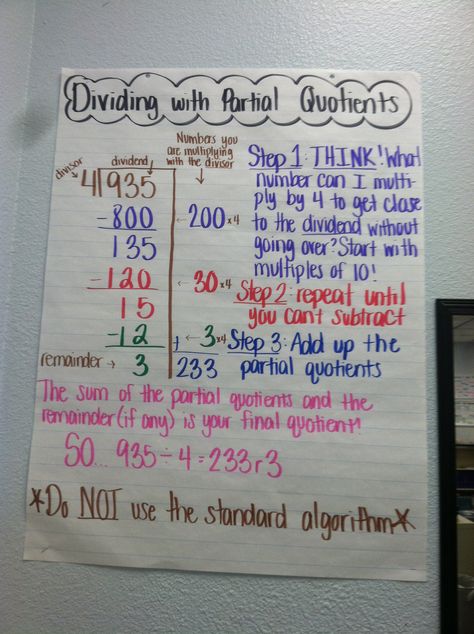 Dividing with Partial Quotients
Numbers you
are multiplying
with the divisor
divisor
dividend
4)935
-800 ← 200 x4
135
-120 ← 30 x4
15
-12 ← 3 x4
remainder → 3
+
233
Step 1: THINK! What
number can I multi-
ply by 4 to get close
to the dividend without
going over? Start with
multiples of 10!
Step 2: repeat until
you can't subtract
Step 3: Add up the
partial quotients
The sum of the partial quotients and the
remainder (if any) is your final quotient!
SO... 935÷4=233r3
*Do NOT use the standard algorithm*